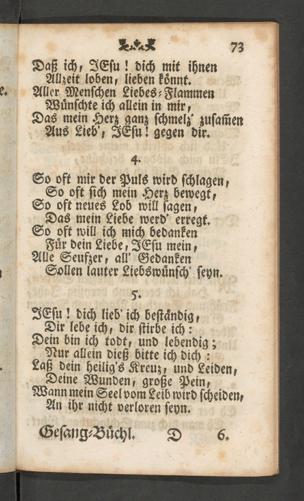 73
Daß ich, JEsu! dich mit ihnen
Allzeit loben, lieben könnt.
Aller Menschen Liebes-Flammen
Wünschte ich allein in mir,
Das mein Herz ganz schmelz' zusam̄en
Aus Lieb', JEsu! gegen dir.
4.
So oft mir der Puls wird schlagen,
So oft sich mein Herz bewegt,
So oft neues Lob will sagen,
Das mein Liebe werd' erregt.
So oft will ich mich bedanken
Für dein Liebe, JEsu mein,
Alle Seufzer, all' Gedanken
Sollen lauter Liebswünsch' seyn.
5.
JEsu! dich lieb' ich beständig,
Dir lebe ich, dir stirbe ich:
Dein bin ich todt, und lebendig;
Nur allein dieß bitte ich dich:
Laß dein heilig's Kreuz, und Leiden,
Deine Wunden, große Pein,
Wann mein Seel vom Leib wird scheiden,
An ihr nicht verloren seyn.
Gesang-Büchl. D 6.